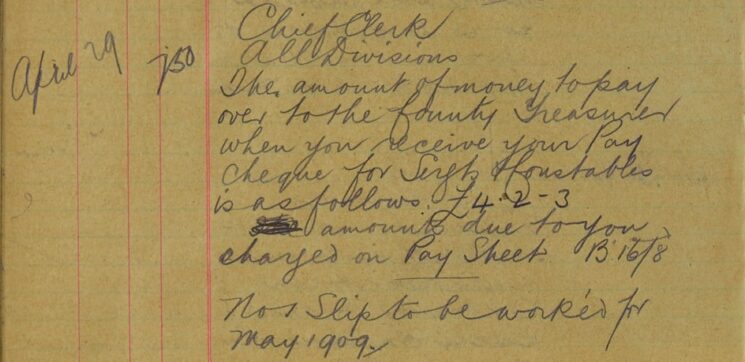 Chief Clerk
All Divisions
April 29 750
The amount of money to pay
over to the County Treasurer
when you receive your Pay
cheque for Sergts & Constables
is as follows. £4-2-3
amounts due to you
charged on Pay Sheet B. 16/8
No 1 Slip to be worked for
May 1909.